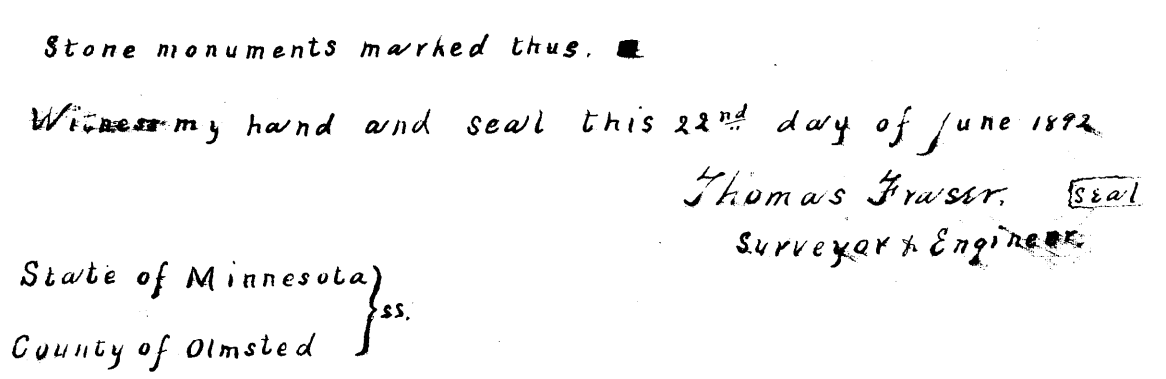 Stone monuments marked thus. ■
Witness my hand and seal this 22nd day of June 1892
Thomas Fraser. seal
Surveyor & Engineer.
State of Minnesota } ss.
County of Olmsted